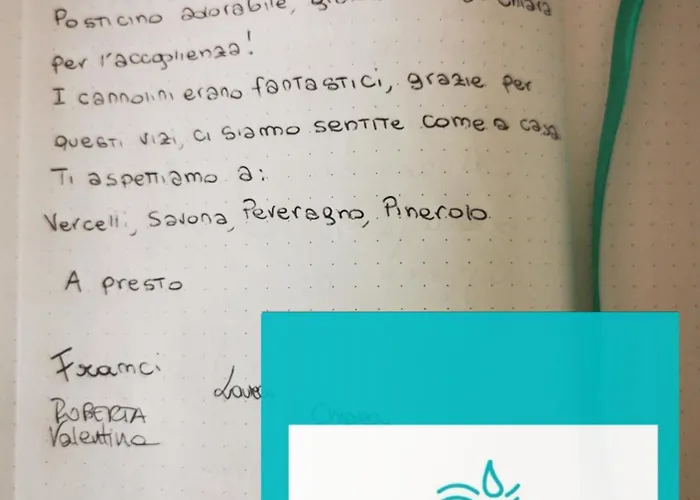 Posticino adorabile, Chiara
per l'accoglienza!
I cannolini erano fantastici, grazie per
questi vizi, ci siamo sentite come a casa
Ti aspettiamo a:
Vercelli, Savona, Peveragno, Pinerolo
A presto
Franci
ROBERTA
Valentina